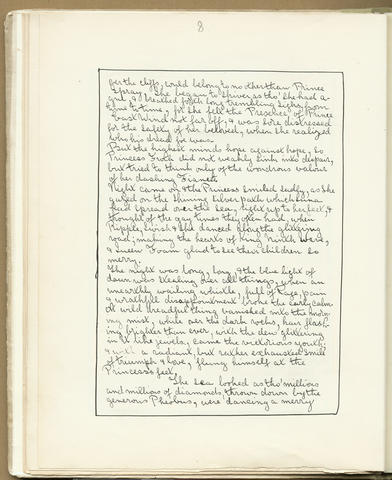 8
over the cliffs, could belong to no other than Prince
Spray. She began to shiver as tho' she had a
& breathed forth long trembling sighs from
time to time, for she felt the Presence of Prince
East Wind not far off, & was sore distressed
for the safety of her beloved, when she realized
who his dread foe was.
But the highest minds hope against hope, so
Princess Froth did not weakly sink into despair,
but tried to think only of the wondrous valour
of her dashing Fiancé.
Night came on & the Princess smiled sadly, as she
gazed on the shining silver path which Luna
had spread over the sea, right up to her feet, &
thought of the gay times they often had, when
Ripple, Swish & she danced along the glittering
road; making the hearts of King Ninth Wave,
& Queen Foam glad to see their children so
merry.
The night was long, long, & the blue light of
dawn was stealing over all things, when an
unearthly wailing whistle, full of rage, pain
& wrathful disappointment, broke the early calm.
A wild dreadful thing vanished into the morn-
ing mist, while over the dark rocks, hair flash-
ing brighter than ever, with the dew glittering
in it like jewels, came the victorious youth;
& with a radiant, but rather exhausted smile
of triumph & love, flung himself at the
Princess's feet.
The sea looked as tho' millions
and millions of diamonds, thrown down by the
generous Phoebus, were dancing a merry